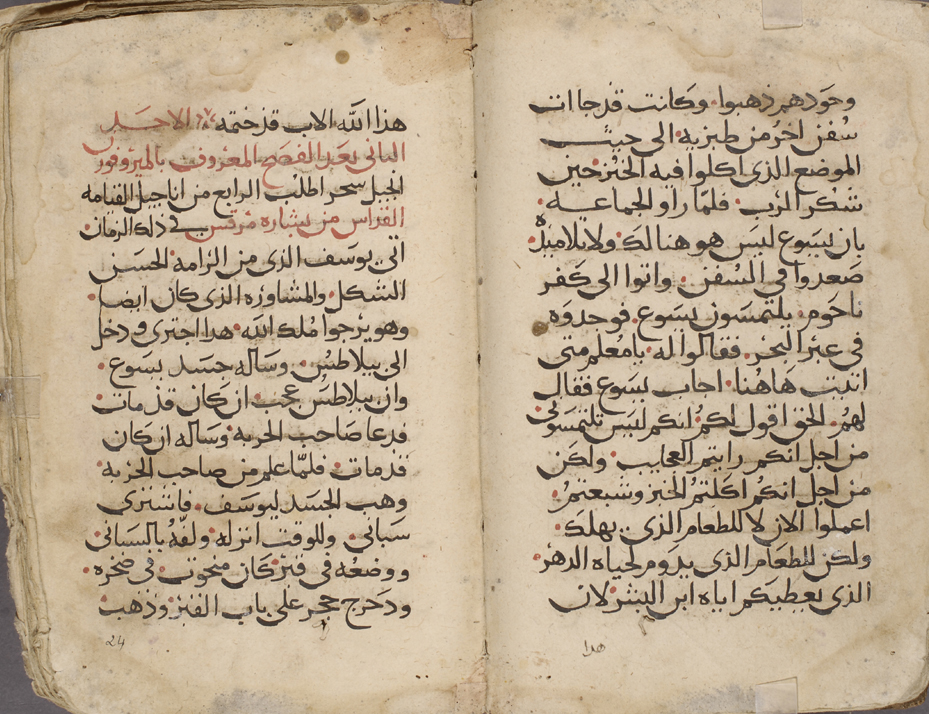 وحودهم ذهبوا. وكانت قد جاات
سفن اخر من طبريه الى حيث
الموضع الذى اكلوا فيه الخبز حين
شكر الرب. فلما راو الجماعه
بان يسوع ليس هو هنالك ولا تلاميذه
صعدوا في السفن. واتوا الى كفر
ناحوم. يلتمسون يسوع. فوجدوه
في عبر البحر. فقالوا له. يامعلم متى
اتيت هاهنا. اجاب يسوع فقال
لهم. الحق اقول لكم انكم ليس تلتمسونى
من اجل انكم رايتم العجايب. ولكن
من اجل انكم اكلتم الخبز وشبعتم.
اعملوا الان لا للطعام الذى يهلك.
ولكن للطعام الذى يدوم لحياه الدهر.
الذى يعطيكم اياه ابن البشر لان
هذا
هذا الله الاب قد ختمه الاحد
الثانى بعد الفصح المعروف بالميروفور
الجيل سحر اطلب الرابع من اناجيل القيامه
القداس من بشاره مرقس في ذلك الزمان
اتى يوسف الذى من الرامه الحسن
الشكل. والمشاوره الذى كان ايضا.
وهو يرجوا ملك الله. هدا اجترى ودخل
الى بيلاطس. وساله جسد يسوع.
وان بيلاطس عجب ان كان قد مات.
فدعا صاحب الحربه وساله ان كان
قد مات. فلما علم من صاحب الحربه.
وهب الجسد ليوسف. فاشترى
سبانى. وللوقت انزله ولفه بالسبانى
ووضعه في قبر كان منحوت في صخره.
ودحرج حجر على باب القبر وذهب
24